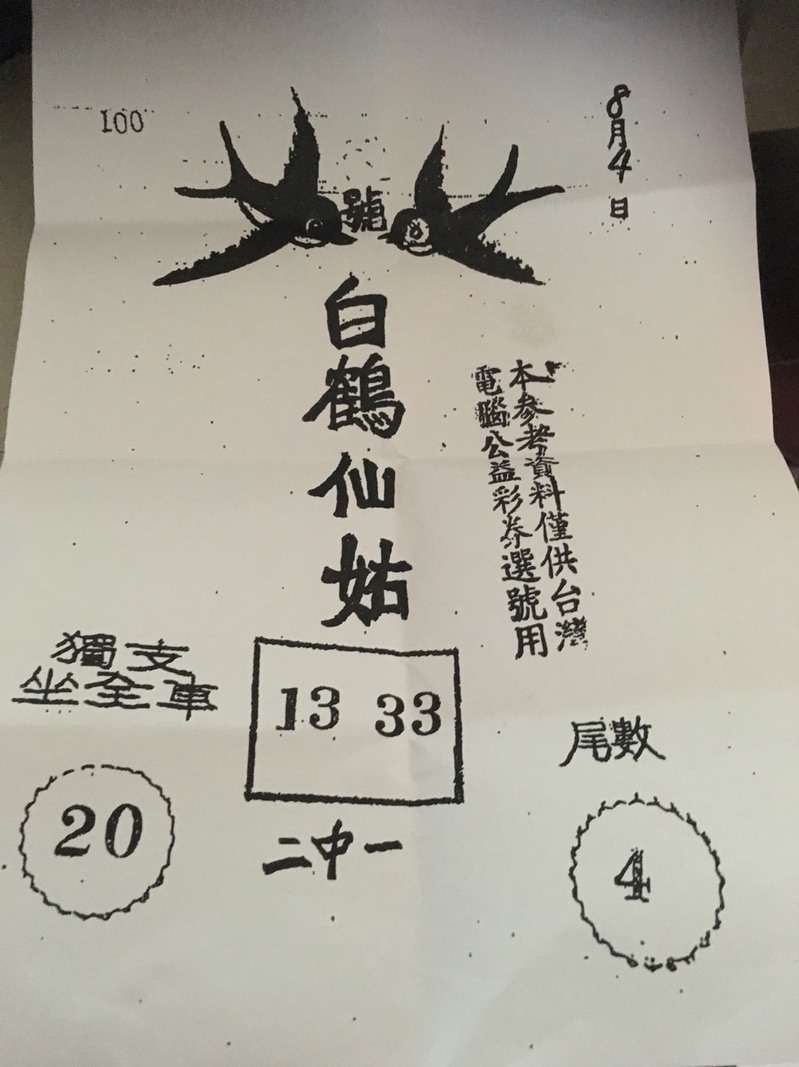 100
8月4日
號
白鶴仙姑
本參考資料僅供台灣
電腦公益彩券選號用
獨支
坐全車
20
13 33
二中一
尾數
4